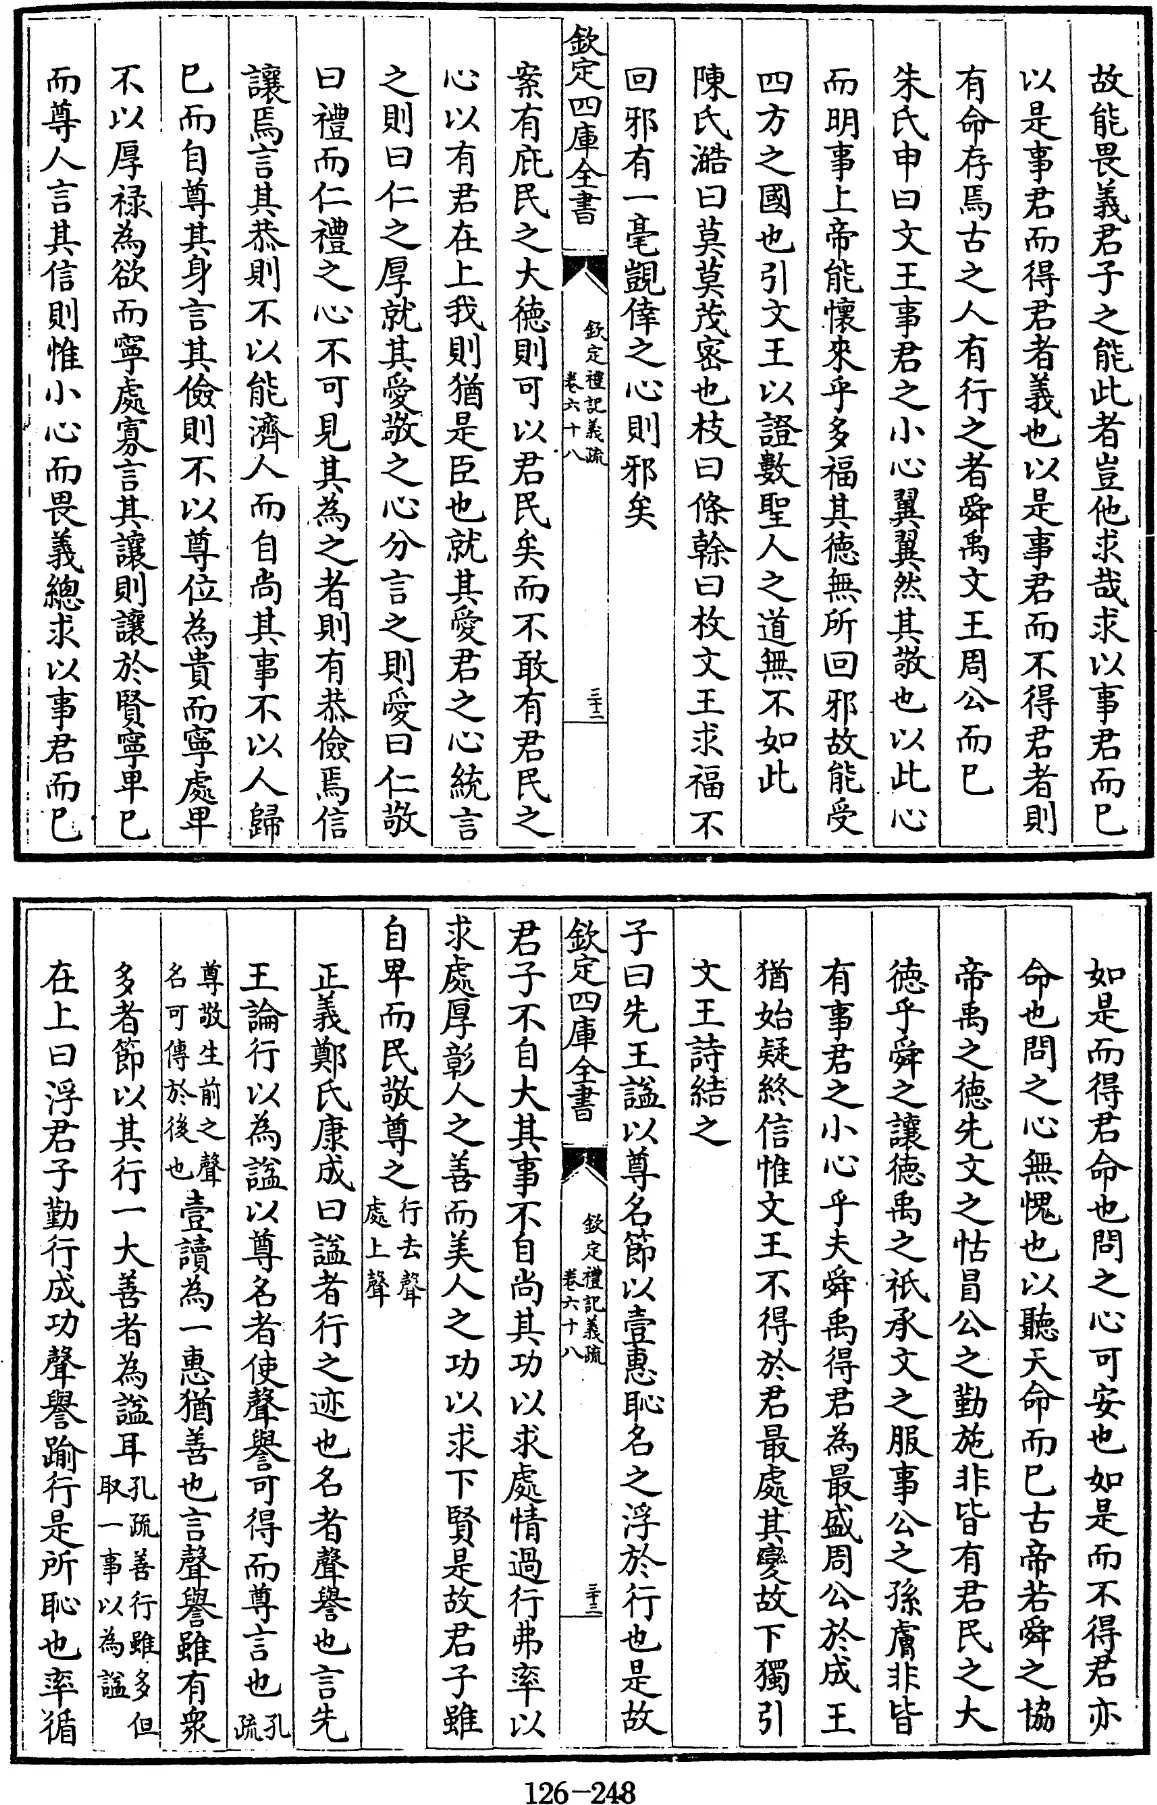 故能畏義君子之能此者豈他求哉求以事君而已
以是事君而得君者義也以是事君而不得君者則
有命存焉古之人有行之者舜禹文王周公而已
朱氏申曰文王事君之小心翼翼然其敬也以此心
而明事上帝能懷來乎多福其徳無所回邪故能受
四方之國也引文王以證數聖人之道無不如此
陳氏澔曰莫莫茂密也枝曰條幹曰枚文王求福不
回邪有一毫覬倖之心則邪矣
欽定四庫全書
欽定禮記義疏
卷六十八
三十二
案有庇民之大徳則可以君民矣而不敢有君民之
心以有君在上我則猶是臣也就其愛君之心統言
之則曰仁之厚就其愛敬之心分言之則愛曰仁敬
曰禮而仁禮之心不可見其為之者則有恭儉焉信
讓焉言其恭則不以能濟人而自尚其事不以人歸
已而自尊其身言其儉則不以尊位為貴而寧處卑
不以厚禄為欲而寧處寡言其讓則讓於賢寧卑已
而尊人言其信則惟小心而畏義總求以事君而已
如是而得君命也問之心可安也如是而不得君亦
命也問之心無愧也以聽天命而已古帝若舜之協
帝禹之徳先文之怙冒公之勤施非皆有君民之大
徳乎舜之讓徳禹之祇承文之服事公之孫膚非皆
有事君之小心乎夫舜禹得君為最盛周公於成王
猶始疑終信惟文王不得於君最處其變故下獨引
文王詩結之
子曰先王諡以尊名節以壹惠恥名之浮於行也是故
欽定四庫全書
欽定禮記義疏
卷六十八
三十三
君子不自大其事不自尚其功以求處情過行弗率以
求處厚彰人之善而美人之功以求下賢是故君子雖
自卑而民敬尊之行去聲處上聲
正義鄭氏康成曰諡者行之迹也名者聲譽也言先
王論行以為諡以尊名者使聲譽可得而尊言也孔疏
尊敬生前之聲名可傳於後也壹讀為一惠猶善也言聲譽雖有衆
多者節以其行一大善者為諡耳孔疏善行雖多但取一事以為諡
在上曰浮君子勤行成功聲譽踰行是所恥也率循
126-248